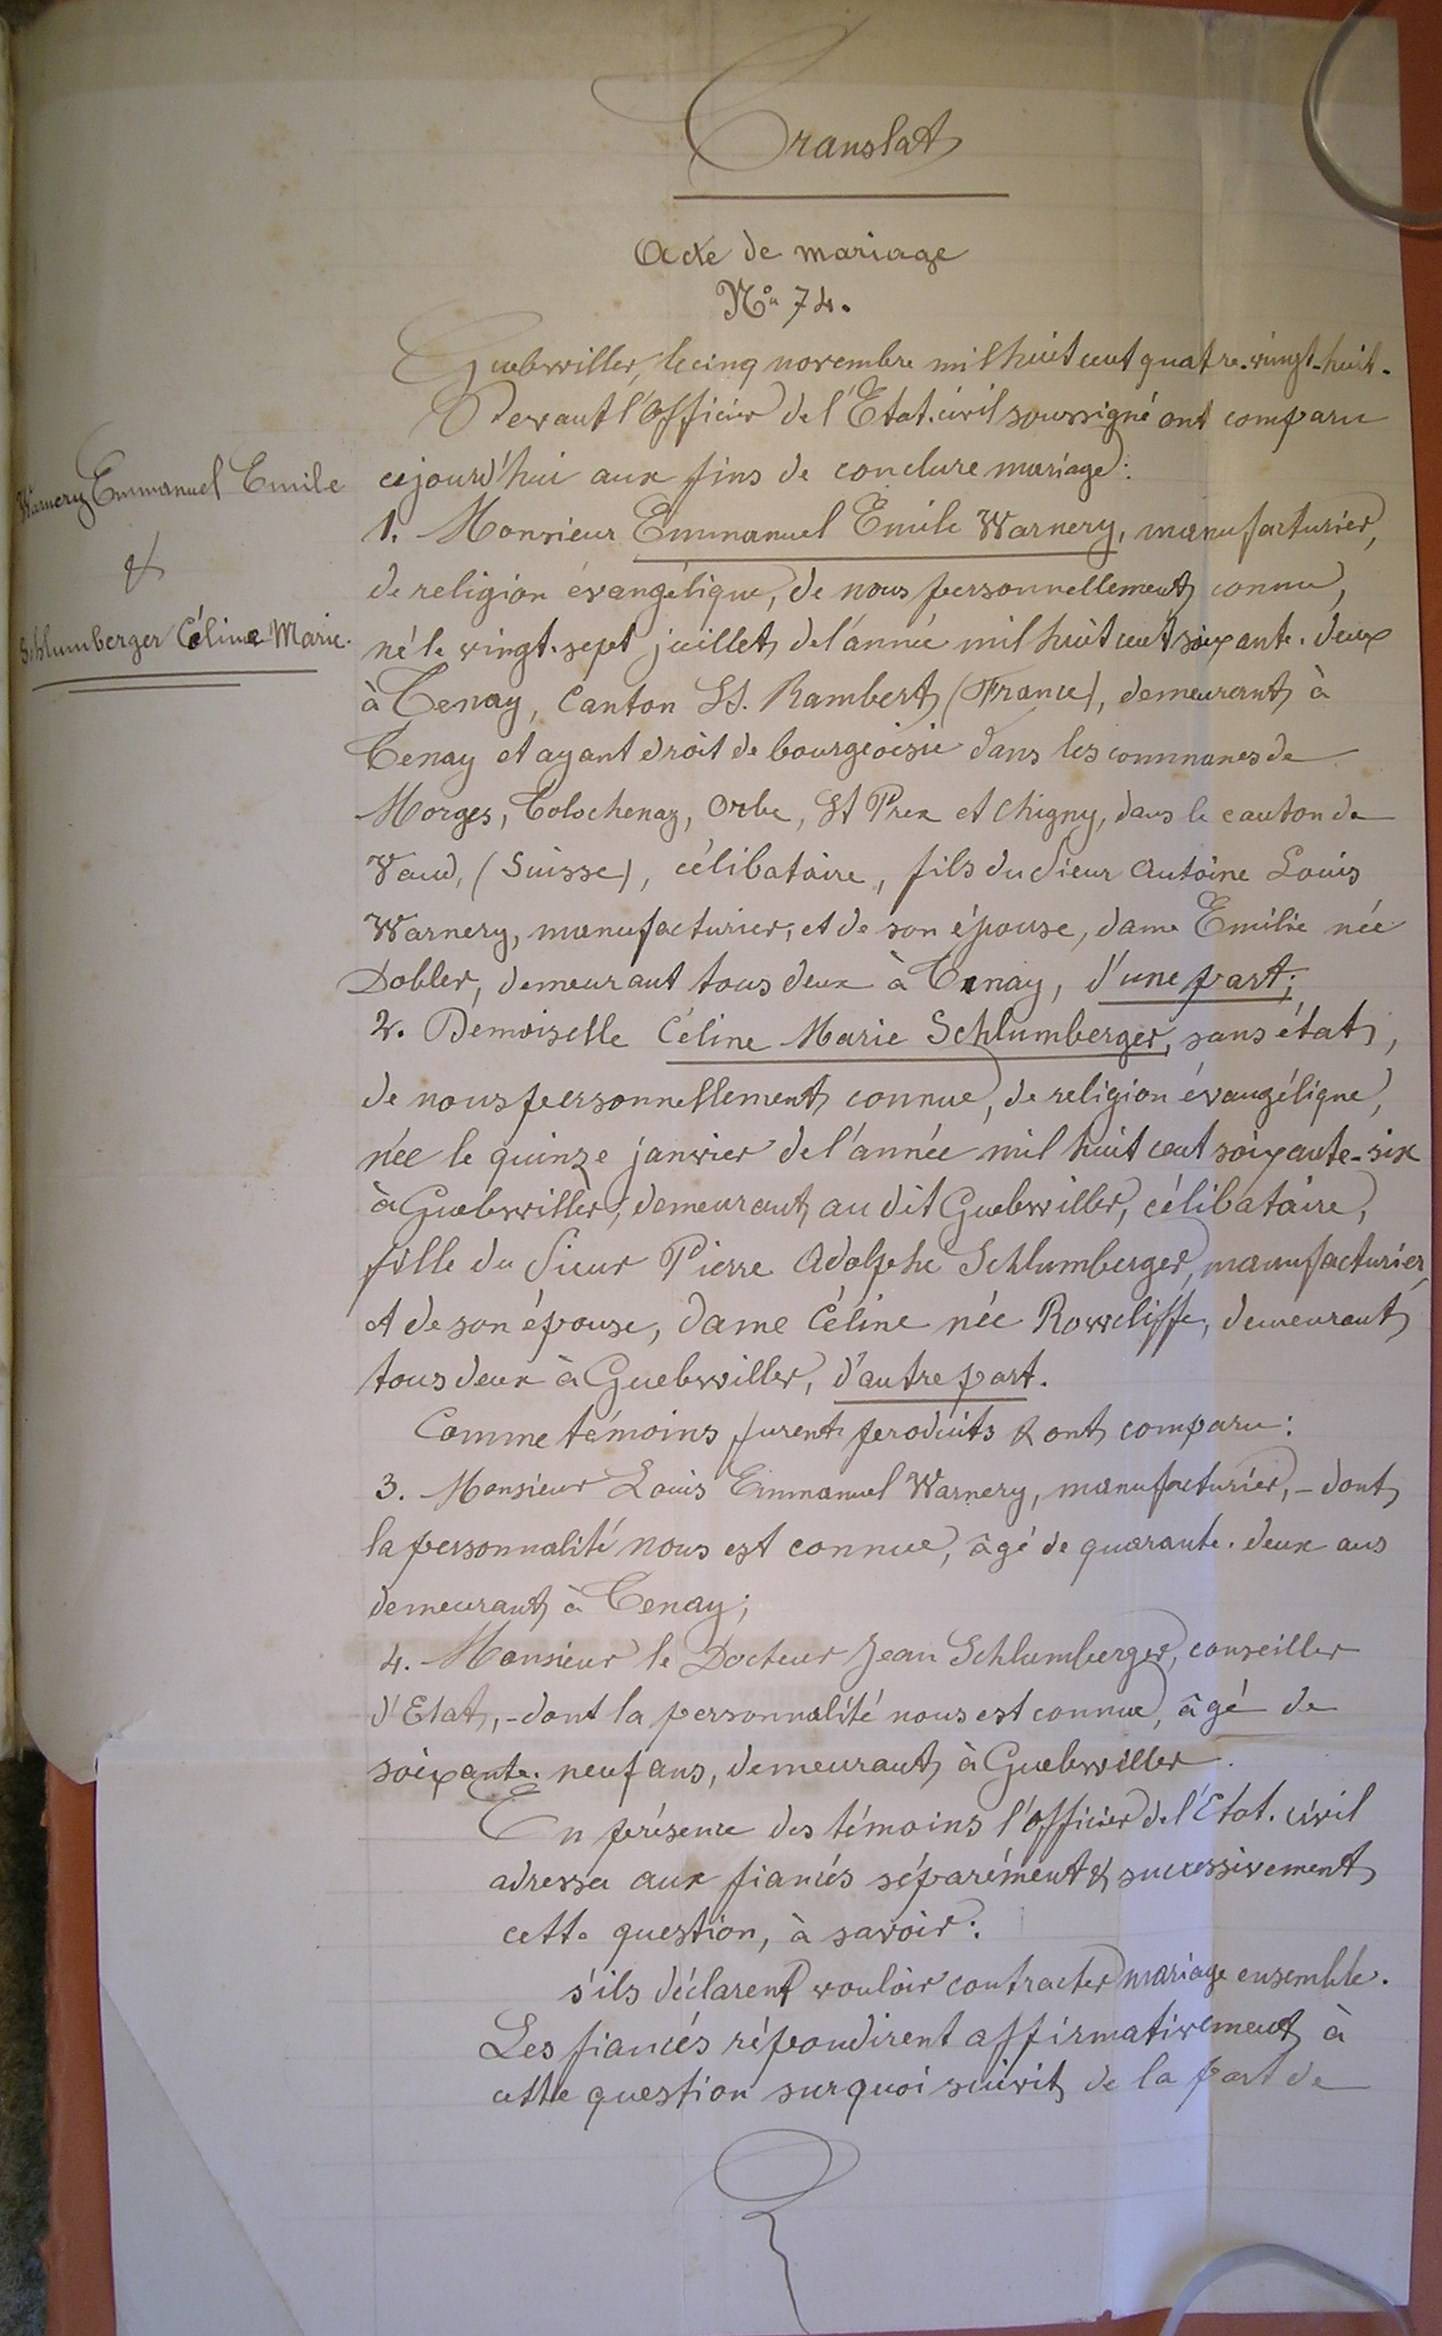 Translat
Acte de mariage
No. 74.
Guebwiller, le cinq novembre mil huit cent quatre-vingt-huit.
Devant l'Officier de l'Etat-civil soussigné ont comparu
Warnery Emmanuel Emile
&
Schlumberger Céline Marie.
cejourd'hui aux fins de conclure mariage:
1. Monsieur Emmanuel Emile Warnery, manufacturier,
de religion évangélique, de nous personnellement connu,
né le vingt-sept juillet de l'année mil huit cent soixante-deux
à Tenay, Canton St. Rambert (France), demeurant à
Tenay et ayant droit de bourgeoisie dans les communes de
Morges, Tolochenaz, Orbe, St Prex et Chigny, dans le canton de
Vaud, (Suisse), célibataire, fils du Sieur Antoine Louis
Warnery, manufacturier, et de son épouse, dame Emilie née
Dobler, demeurant tous deux à Tenay, d'une part;
2. Demoiselle Céline Marie Schlumberger, sans état,
de nous personnellement connue, de religion évangélique,
née le quinze janvier de l'année mil huit cent soixante-six
à Guebwiller, demeurant au dit Guebwiller, célibataire,
fille du Sieur Pierre Adolphe Schlumberger, manufacturier,
et de son épouse, dame Céline née Rowcliffe, demeurant
tous deux à Guebwiller, d'autre part.
Comme témoins furent produits & ont comparu:
3. Monsieur Louis Emmanuel Warnery, manufacturier, - dont
la personnalité nous est connue, âgé de quarante-deux ans
demeurant à Tenay;
4. Monsieur le Docteur Jean Schlumberger, conseiller
d'Etat, - dont la personnalité nous est connue, âgé de
soixante-neuf ans, demeurant à Guebwiller.
En présence des témoins l'officier de l'Etat-civil
adressa aux fiancés séparément & successivement
cette question, à savoir:
s'ils déclarent vouloir contracter mariage ensemble.
Les fiancés répondirent affirmativement à
cette question surquoi suivit de la part de